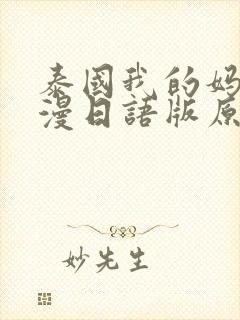 泰國我的媽
漫日語版原
妙先生